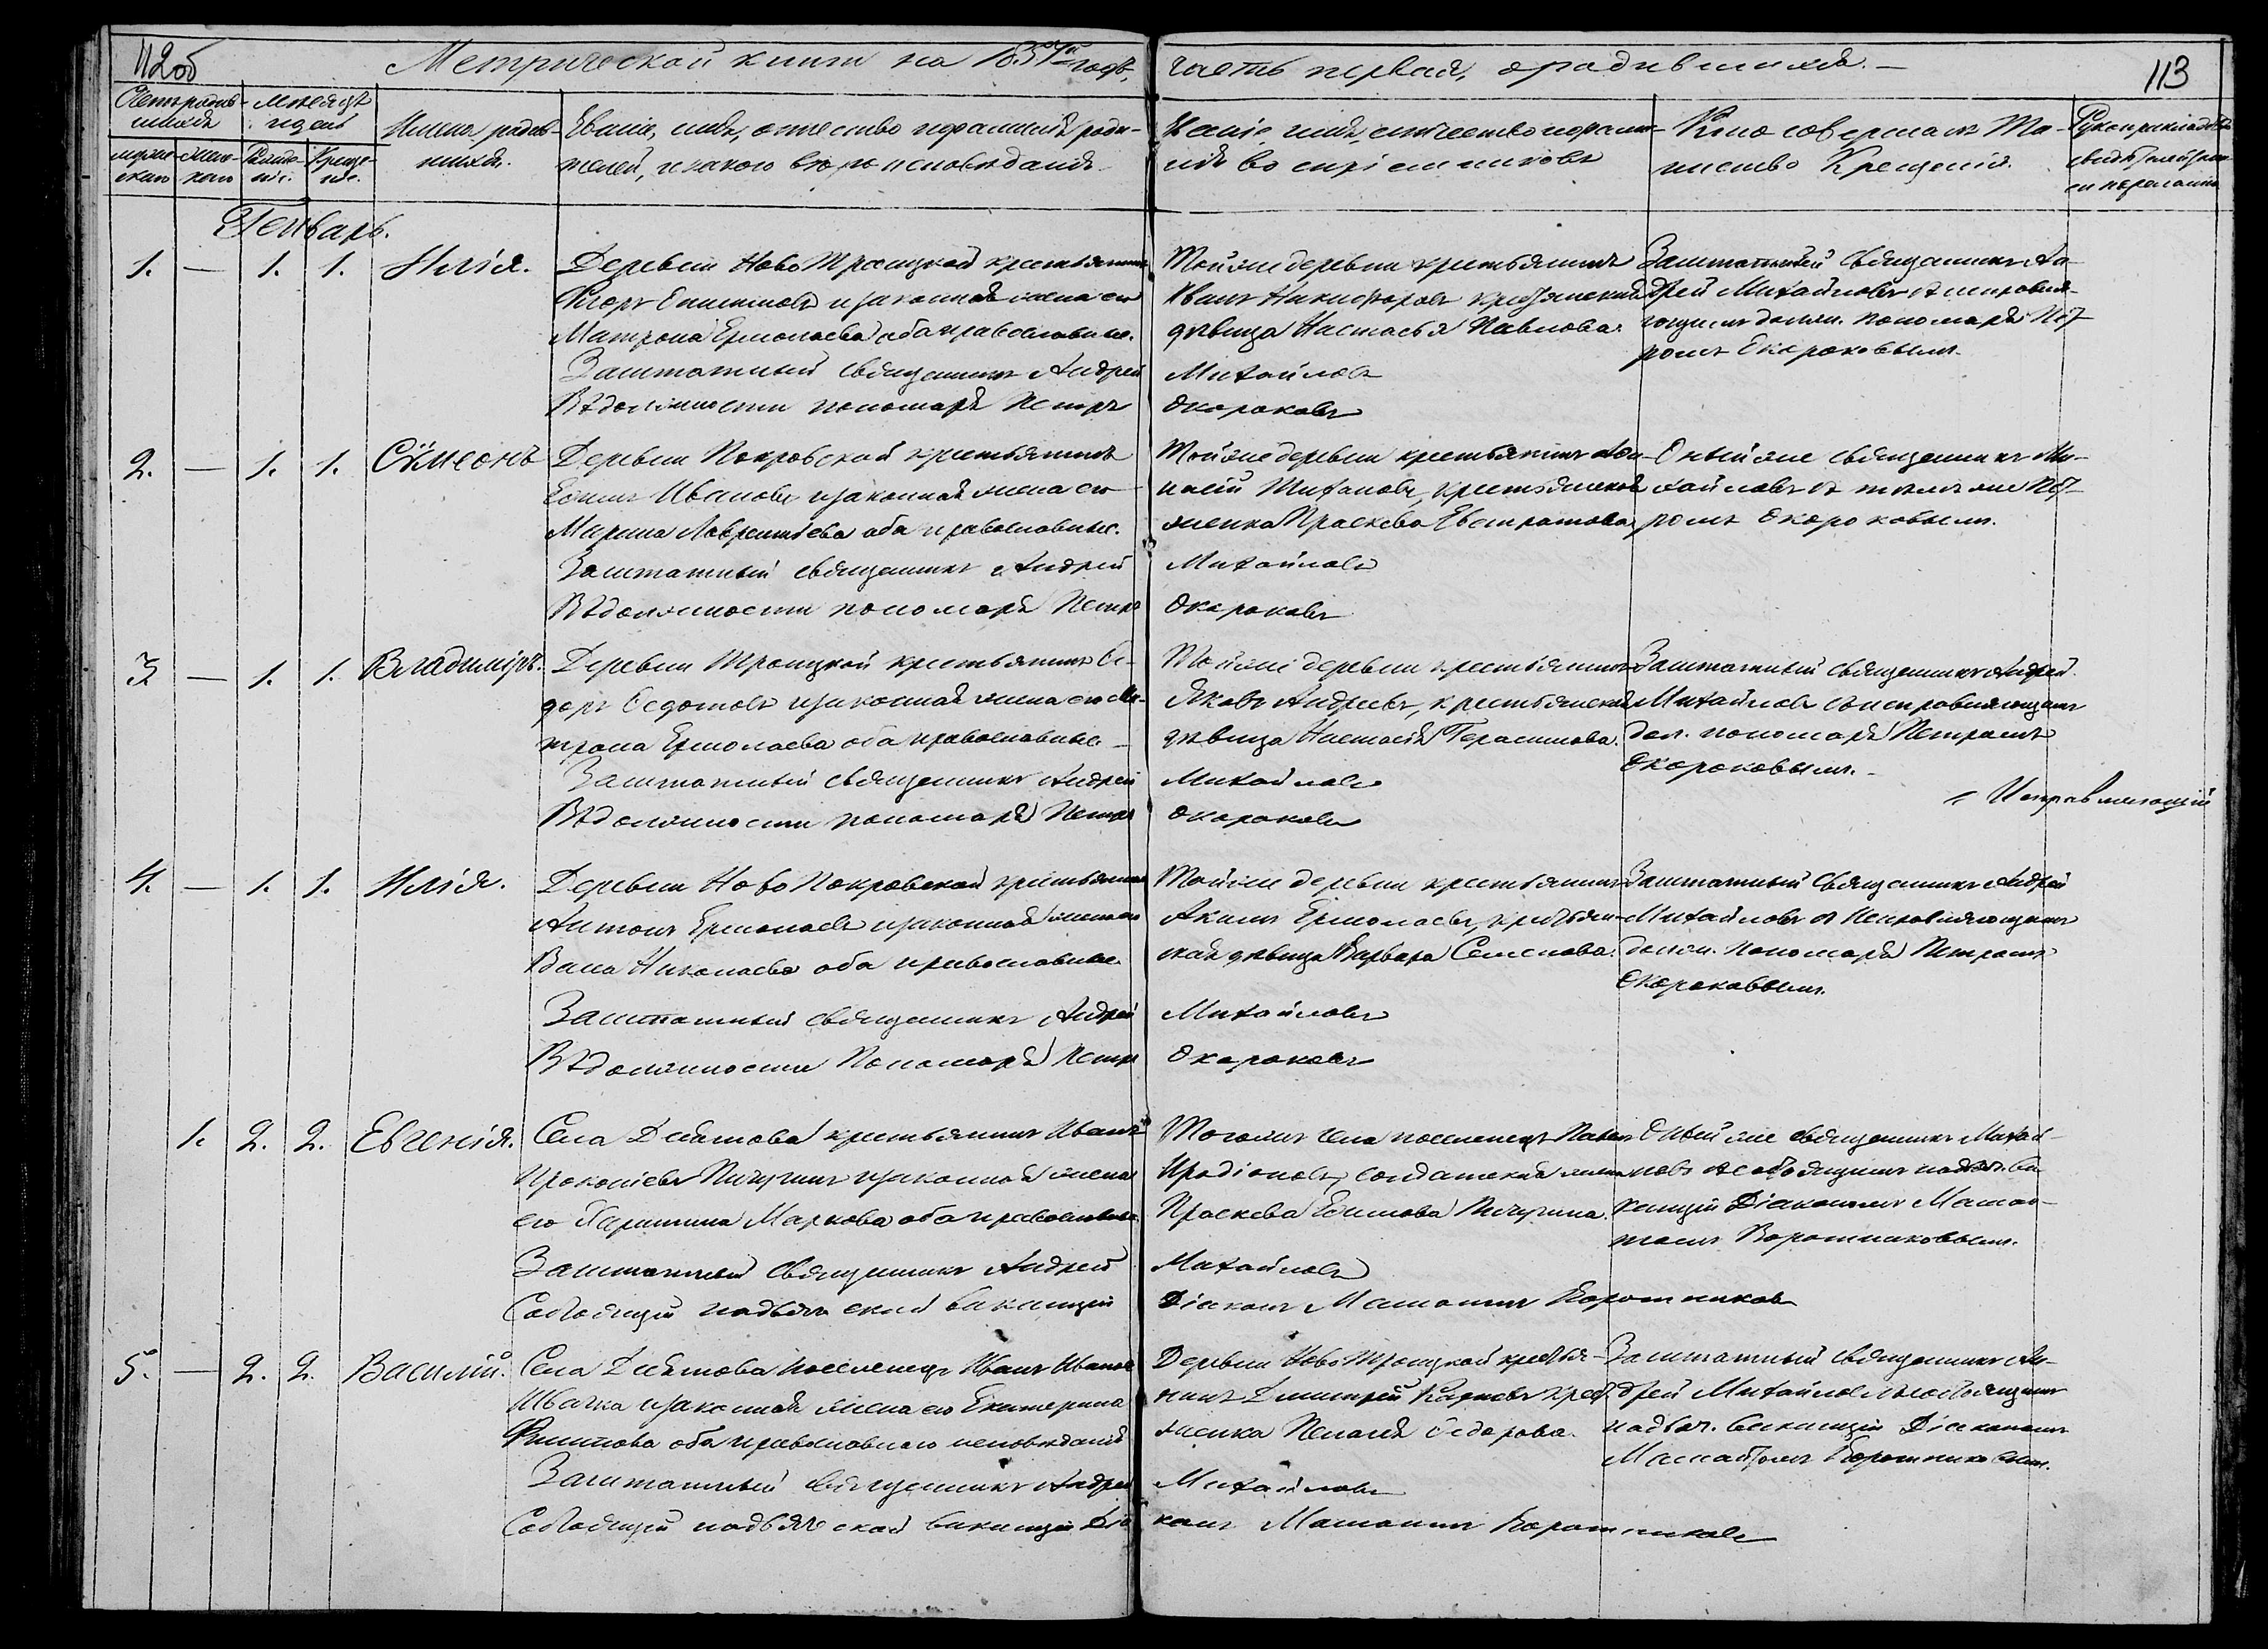 112об
Метрической книги на 1857й годъ, часть первая, о родившихся.
113
Счетъ родившихся
Месяцъ и день
Имена родившихся.
Званіе, имя, отчество и фамилія родителей, и какого вѣроисповѣданія
Званіе, имя, отчество и фамилія воспріемниковъ
Кто совершалъ Таинство Крещенія.
Рукоприкладство свидѣтелей
мужескаго
женскаго
Рожденіе.
Крещеніе.
Генварь.
1. — 1. 1. Илія.
Деревни Ново Троицкой крестьянинъ
и законная жена его
Матрона Ермолаева оба православные.
Заштатный священникъ Андрей
В должности пономаря Петръ
Той же деревни крестьянинъ
Иванъ Никифоровъ крестьянская
дѣвица Настасья Павлова.
Михайловъ
Окороковъ
Заштатный Священникъ Ан-
дрей Михайловъ съ исправля-
ющимъ должн. пономаря Пет-
ромъ Окороковымъ.
2. — 1. 1. Сѵмеонъ
Деревни Покровской крестьянинъ
Ефимъ Ивановъ и законная жена его
Марина Лаврентьева оба православные.
Заштатный священникъ Андрей
В должности пономаря Петръ
Той же деревни крестьянинъ
Тихановъ, крестьянская
женка Праскева Евстратова
Михайловъ
Окороковъ
Оный же священникъ Ми-
хайловъ съ тѣмъ же Пет-
ромъ Окороковымъ.
3. — 1. 1. Владиміръ.
Деревни Троицкой крестьянинъ Ѳе-
доръ Ѳедотовъ и законная жена его Ма-
трона Ермолаева оба православные.
Заштатный священникъ Андрей
В должности пономаря Петръ
Той же деревни крестьянинъ
Яковъ Андреевъ, крестьянская
дѣвица Настасія Герасимова.
Михайловъ
Окороковъ
Заштатный священникъ Андрей
Михайловъ съ исправляющимъ
дол. пономаря Петромъ
Окороковымъ.
Исправляющій
4. — 1. 1. Илія.
Деревни Ново Покровской крестьянинъ
Антонъ Ермолаевъ и законная жена его
Васа Николаева оба православные
Заштатный священникъ Андрей
В должности Пономаря Петръ
Той же деревни крестьянинъ
Акимъ Ермолаевъ, крестьян-
ская дѣвица Варвара Семенова.
Михайловъ
Окороковъ
Заштатный Священникъ Андрей
Михайловъ съ Исправляющимъ
должн. пономаря Петромъ
Окороковымъ.
1. 2. 2. Евгенія.
Села Девятова крестьянинъ Иванъ
Прокопіевъ Пичугинъ и законная жена
его Маркова оба православные
Заштатный Священникъ Андрей
Состоящій на дьяческой вакансіи
Тогожъ села поселенецъ Павелъ
Иродіоновъ, солдатская жена
Праскева Ефимова Пичугина.
Михайловъ
Діаконъ Мамонтъ Воротниковъ
Оный же священникъ Михай-
ловъ съ состоящимъ на дьяч. ва-
кансіи Діакономъ Мамон-
томъ Воротниковымъ.
5. — 2. 2. Василій.
Села Девятова поселенецъ Иванъ Ивановъ
Швачка и законная жена его Екатерина
Филипова оба православнаго исповѣданія
Заштатный священникъ Андрей
Состоящій на дьяческой вакансіи Діа
Деревни Ново Троицкой крестья-
нинъ Димитрій Карповъ крест.
женка Пелагія Ѳедорова.
Михайловъ
конъ Мамонтъ Воротниковъ
Заштатный Священникъ Ан-
дрей Михайловъ съ состоящимъ
на дьяч. вакансіи Діакономъ
Мамонтомъ Воротниковымъ.